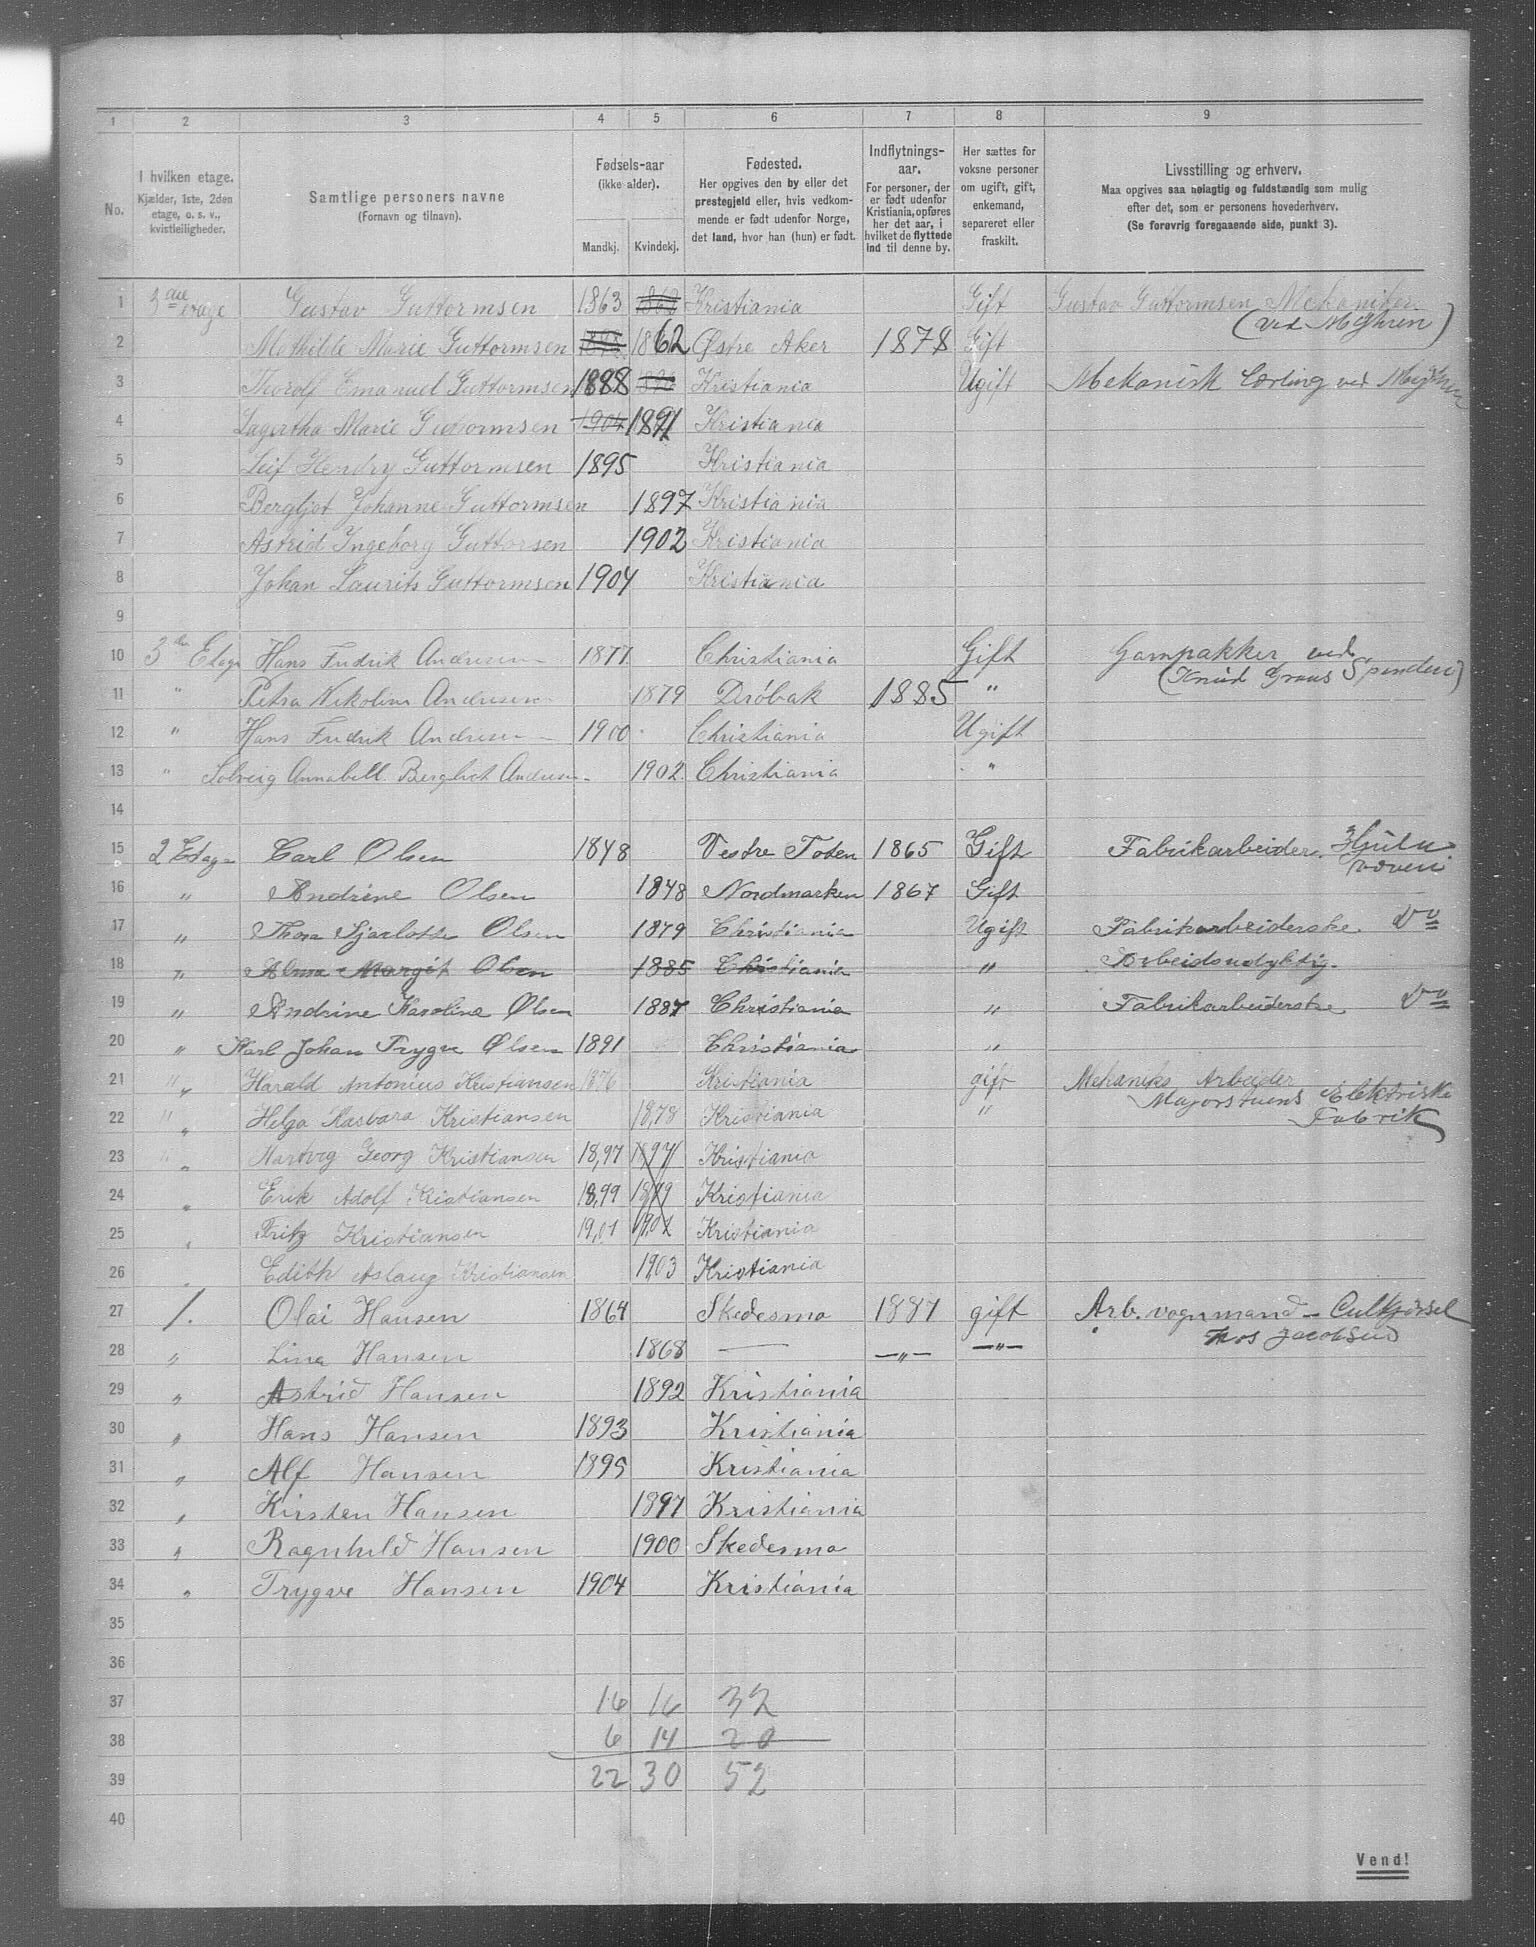 1 2 3 4 5 6 7 8 9
No.
I hvilken etage.
Kjælder, 1ste, 2den
etage, o. s. v.,
kvistleiligheder.
Samtlige personers navne
(Fornavn og tilnavn).
Fødsels-aar
(ikke alder).
Mandkj. Kvindekj.
Fødested.
Her opgives den by eller det
prestegjeld eller, hvis vedkom-
mende er født udenfor Norge,
det land, hvor han (hun) er født.
Indflytnings-
aar.
For personer, der
er født udenfor
Kristiania, opføres
her det aar, i
hvilket de flyttede
ind til denne by.
Her sættes for
voksne personer
om ugift, gift,
enkemand,
separeret eller
fraskilt.
Livsstilling og erhverv.
Maa opgives saa nøiagtig og fuldstændig som mulig
efter det, som er personens hovederhverv.
(Se forøvrig foregaaende side, punkt 3).
1 3die etage Gustav Guttormsen 1863 Kristiania Gift Gustav Guttormsen Mekaniker
(ved Myhren)
2 Mathilde Marie Guttormsen 1862 Østre Aker 1878 Gift
3 Thorolf Emanuel Guttormsen 1888 Kristiania Ugift Mekanisk Lærling ved Myhren
4 Lagertha Marie Guttormsen 1904 1891 Kristiania
5 Leif Hendry Guttormsen 1895 Kristiania
6 Bergljot Johanne Guttormsen 1897 Kristiania
7 Astrid Ingeborg Guttorsen 1902 Kristiania
8 Johan Laurits Guttormsen 1904 Kristiania
9
10 3de Etage Hans Fredrik Andresen 1877 Christiania Gift Garnpakker ved
(Knud Graus Spinderi)
11 " Petra Nikoline Andresen 1879 Drøbak 1885 "
12 " Hans Fredrik Andresen 1900 Christiania Ugift
13 " Solveig Annabell Bergliot Andresen 1902 Christiania "
14
15 2 Etage Carl Olsen 1848 Vestre Toten 1865 Gift Fabrikarbeider. Hjula
væveri
16 " Andrine Olsen 1848 Nordmarken 1867 Gift
17 " Thora Sjarlotte Olsen 1879 Christiania Ugift Fabrikarbeiderske. Do
18 " Alma Margit Olsen 1885 Christiania " Arbeidsudyktig.
19 " Andrine Karoline Olsen 1887 Christiania " Fabrikarbeiderske Do
20 " Karl Johan Trygve Olsen 1891 Christiania "
21 " Harald Antonius Kristiansen 1876 Kristiania gift Mekaniks Arbeider
Majorstuens Elektriske
Fabrik
22 " Helga Barbara Kristiansen 1878 Kristiania "
23 " Hartvig Georg Kristiansen 1897 1897 Kristiania
24 " Erik Adolf Kristiansen 1899 1899 Kristiania
25 " Fritz Kristiansen 1901 1901 Kristiania
26 " Edith Aslaug Kristiansen 1903 Kristiania
27 1. Olai Hansen 1864 Skedesmo 1887 gift Arb. vognmand - Culkjørsel
Thos Jacobsens
28 " Lina Hansen 1868 — —"— —"—
29 " Astrid Hansen 1892 Kristiania
30 " Hans Hansen 1893 Kristiania
31 " Alf Hansen 1895 Kristiania
32 " Kirsten Hansen 1897 Kristiania
33 " Ragnhild Hansen 1900 Skedesmo
34 " Trygve Hansen 1904 Kristiania
35
36
37 16 16 32
38 6 14 20
39 22 30 52
40
Vend!